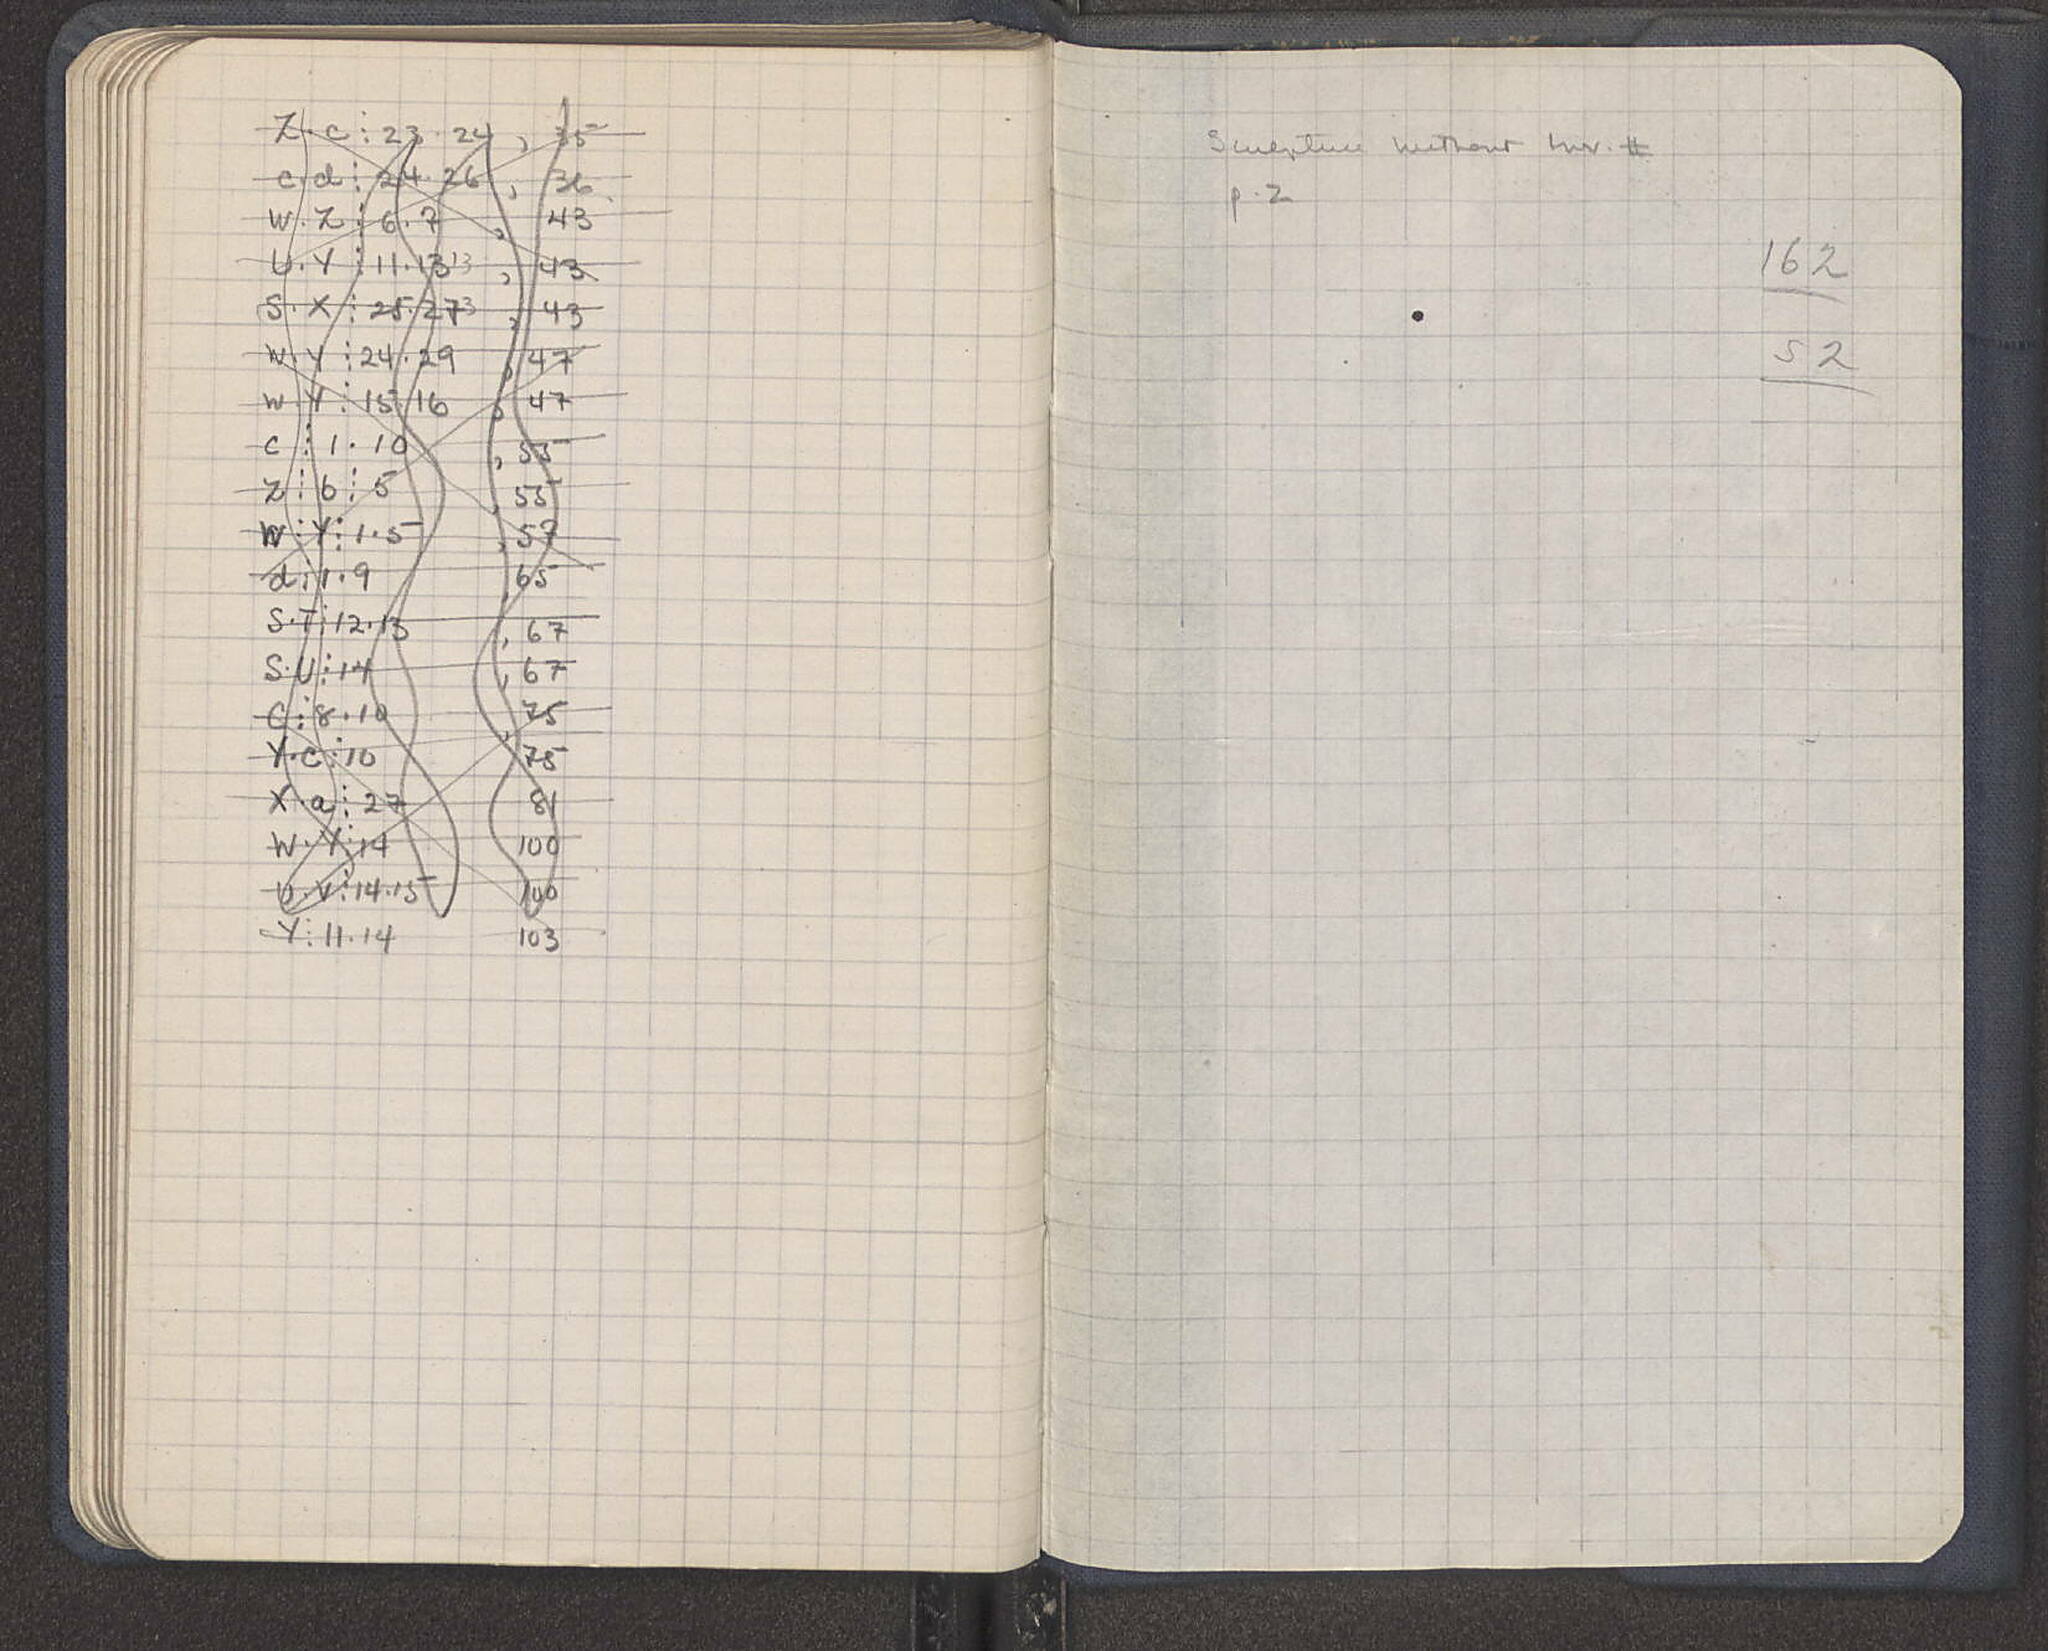 Z·c: 23·24, 35
c·d: 24·26, 36
W·Z: 6·7, 43
U·Y: 11·13 13, 43
S·X: 25·27 3, 43
W·Y: 24·29, 47
W·Y: 15·16, 47
c: 1·10, 55
Z: 6: 5, 55
W: Y: 1·5, 57
d: 1·9, 65
S·T: 12·13, 67
S·U: 14, 67
C: 8·10, 75
Y·C: 10 75
X·a: 27 81
W·Y: 14 100
U·V: 14·15 100
Y: 11·14 103
Sculpture without Inv. #
p. 2
162
52